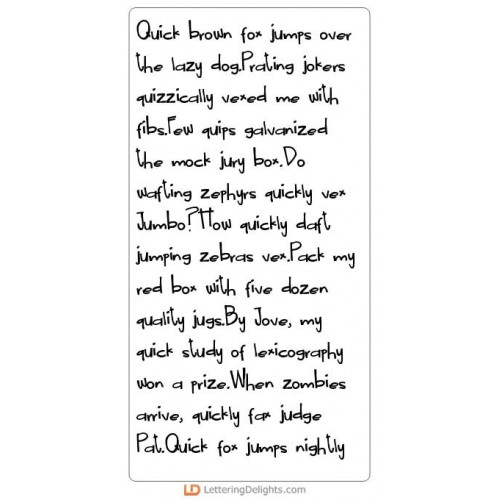 Quick brown fox jumps over
the lazy dog.Prating jokers
quizzically vexed me with
fibs.Few quips galvanized
the mock jury box.Do
wafting zephyrs quickly vex
Jumbo?How quickly daft
jumping zebras vex.Pack my
red box with five dozen
quality jugs.By Jove, my
quick study of lexicography
won a prize.When zombies
arrive, quickly fax judge
Pat.Quick fox jumps nightly
LD LetteringDelights.com